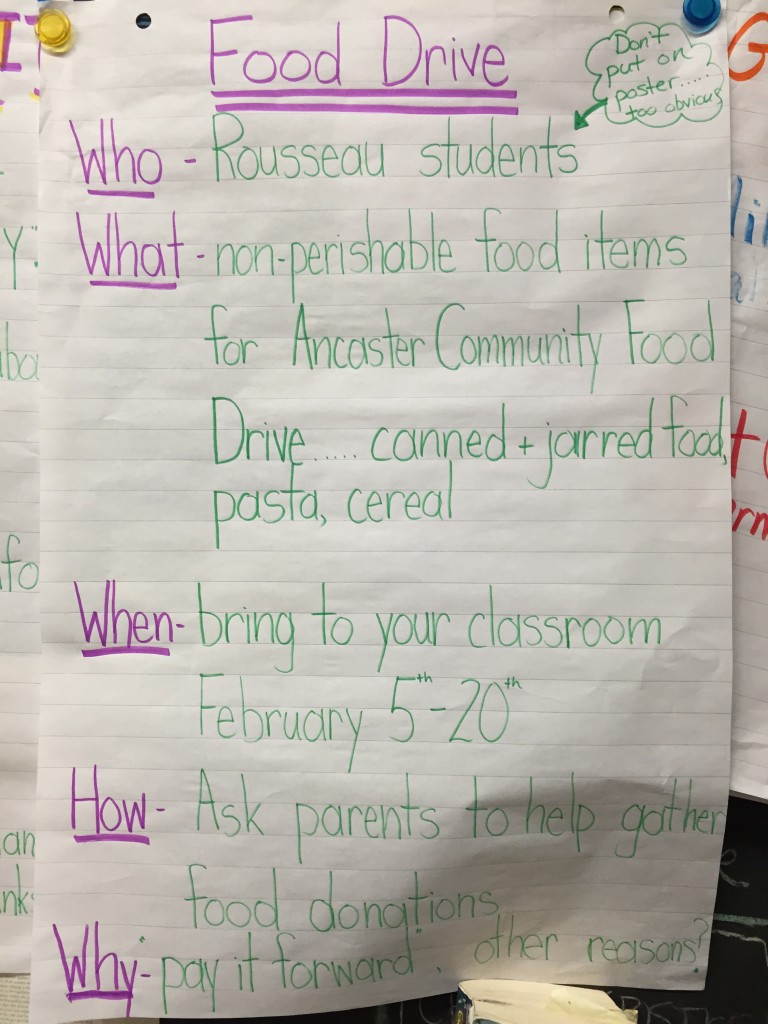 Food Drive
Don't
put on
poster.....
too obvious
Who - Rousseau students
What - non-perishable food items
for Ancaster Community Food
Drive..... canned + jarred food,
pasta, cereal
When - bring to your classroom
February 5th - 20th
How - Ask parents to help gather
food donations
Why - "pay it forward". other reasons?